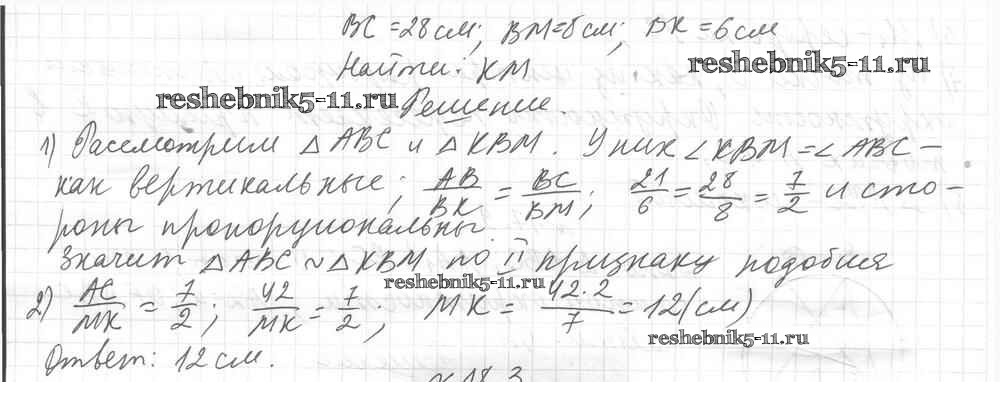 BC = 28 см; BM = 8 см; BK = 6 см
Найти: KM
reshebnik5-11.ru
reshebnik5-11.ru
Решение
1) Рассмотрим △ABC и △KBM. У них ∠KBM = ∠ABC –
как вертикальные; AB/BK = BC/BM; 21/6 = 28/8 = 7/2 и сто-
роны пропорциональны.
Значит △ABC ~ △KBM по II признаку подобия
reshebnik5-11.ru
2) AC/MK = 7/2; 42/MK = 7/2, MK = 42·2/7 = 12 (см)
reshebnik5-11.ru
Ответ: 12 см.